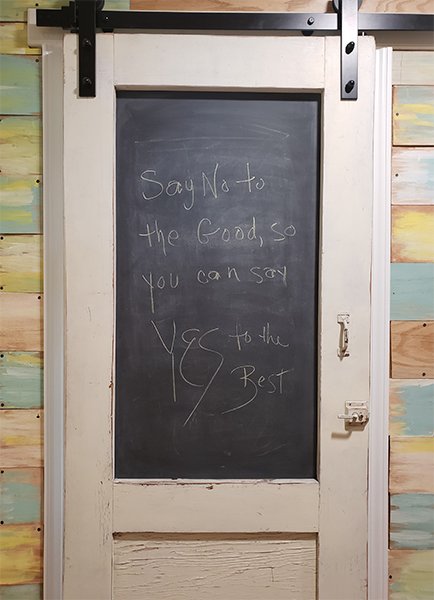 Say No to
the Good, so
you can say
YES to the
Best